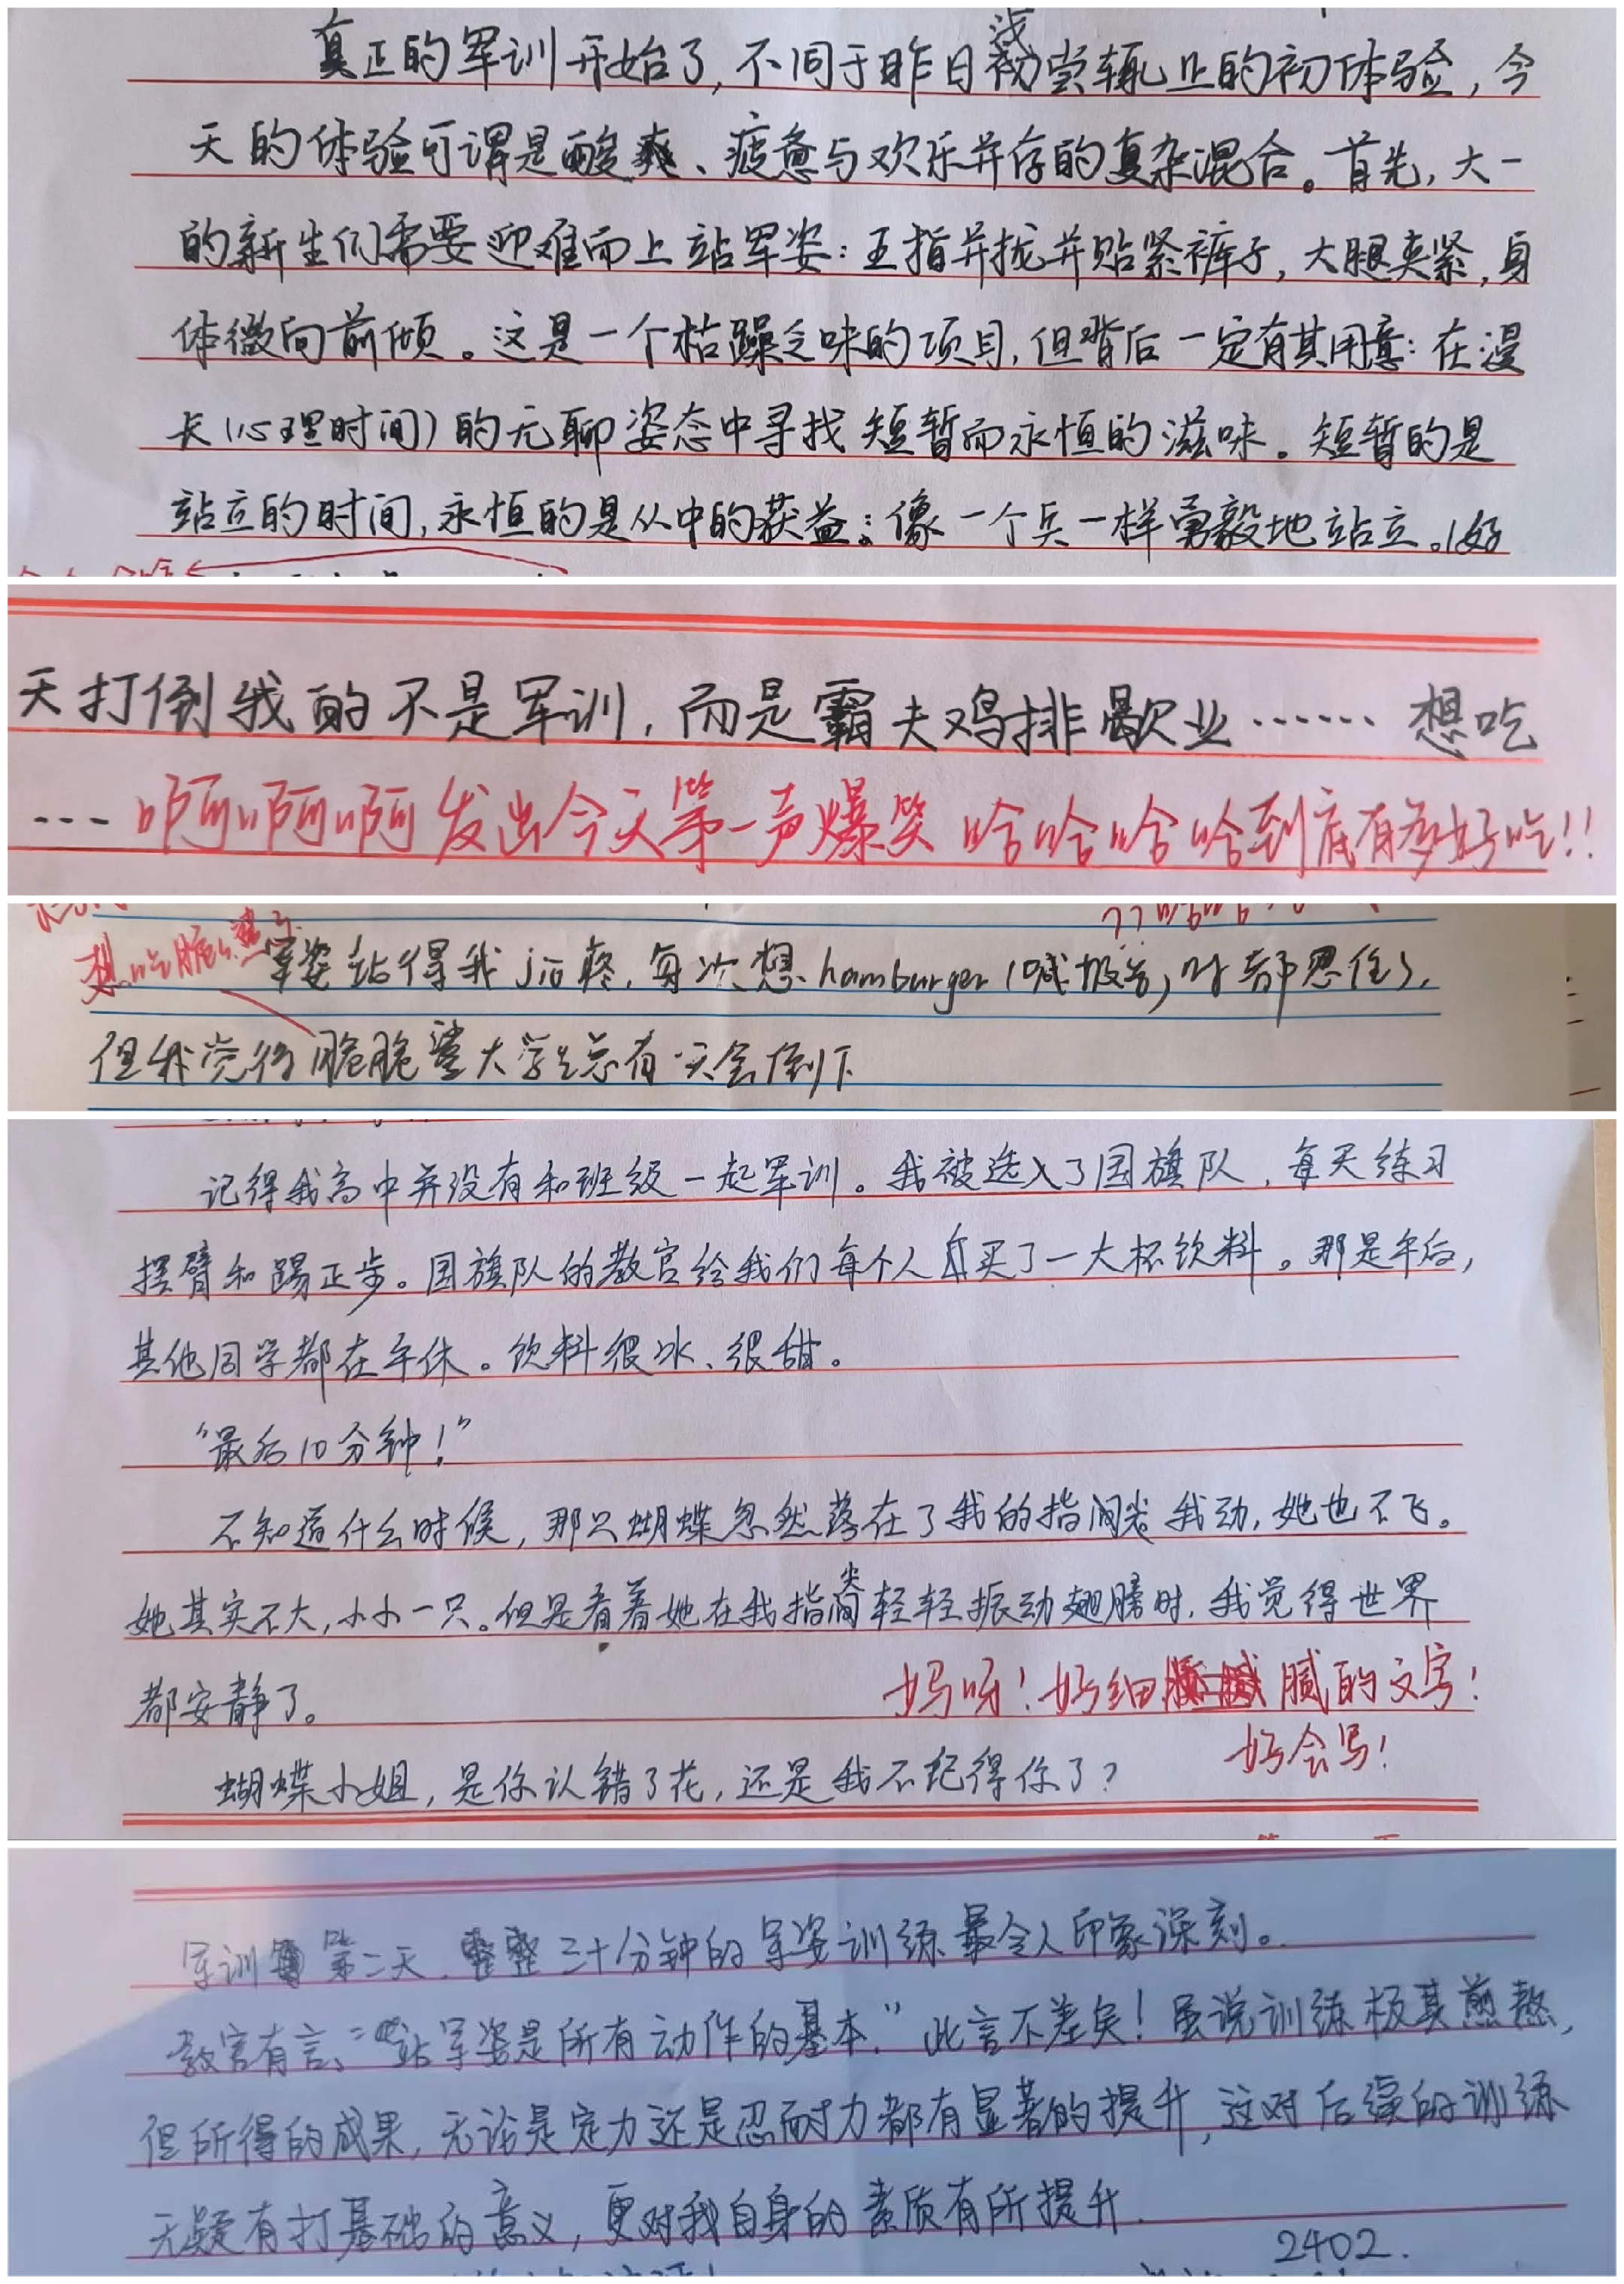 真正的军训开始了，不同于昨日浅尝辄止的初体验，今
天的体验可谓是酸爽、疲惫与欢乐并存的复杂混合。首先，大一
的新生们需要迎难而上站军姿：五指并拢并贴紧裤子，大腿夹紧，身
体微向前倾。这是一个枯躁乏味的项目，但背后一定有其用意：在漫
长（心理时间）的无聊姿态中寻找短暂而永恒的滋味。短暂的是
站立的时间，永恒的是从中的获益：像一个兵一样勇毅地站立。（好
天打倒我的不是军训，而是霸夫鸡排歇业……想吃
…啊啊啊发出今天第一声爆笑 哈哈哈哈到底有多好吃!!
想吃脆脆鲨了
军姿站得我jio疼，每次想hamburger（喊报告）时都忍住了，
但我觉得脆脆鲨大学生总有一天会倒下
记得我高中并没有和班级一起军训。我被选入了国旗队，每天练习
摆臂和踢正步。国旗队的教官给我们每个人买了一大杯饮料。那是午后，
其他同学都在午休。饮料很冰、很甜。
“最后10分钟！”
不知道什么时候，那只蝴蝶忽然落在了我的指尖 我动，她也不飞。
她其实不大，小小一只。但是看着她在我指尖轻轻振动翅膀时，我觉得世界
都安静了。
妈呀！好细腻的文字！
好会写！
蝴蝶小姐，是你认错了花，还是我不记得你了？
军训第二天，整整三十分钟的军姿训练最令人印象深刻。
教官有言：“站军姿是所有动作的基本.”此言不差矣！虽说训练极其煎熬，
但所得的成果，无论是定力还是忍耐力都有显著的提升，这对后续的训练
无疑有打基础的意义，更对我自身的素质有所提升.
2402.